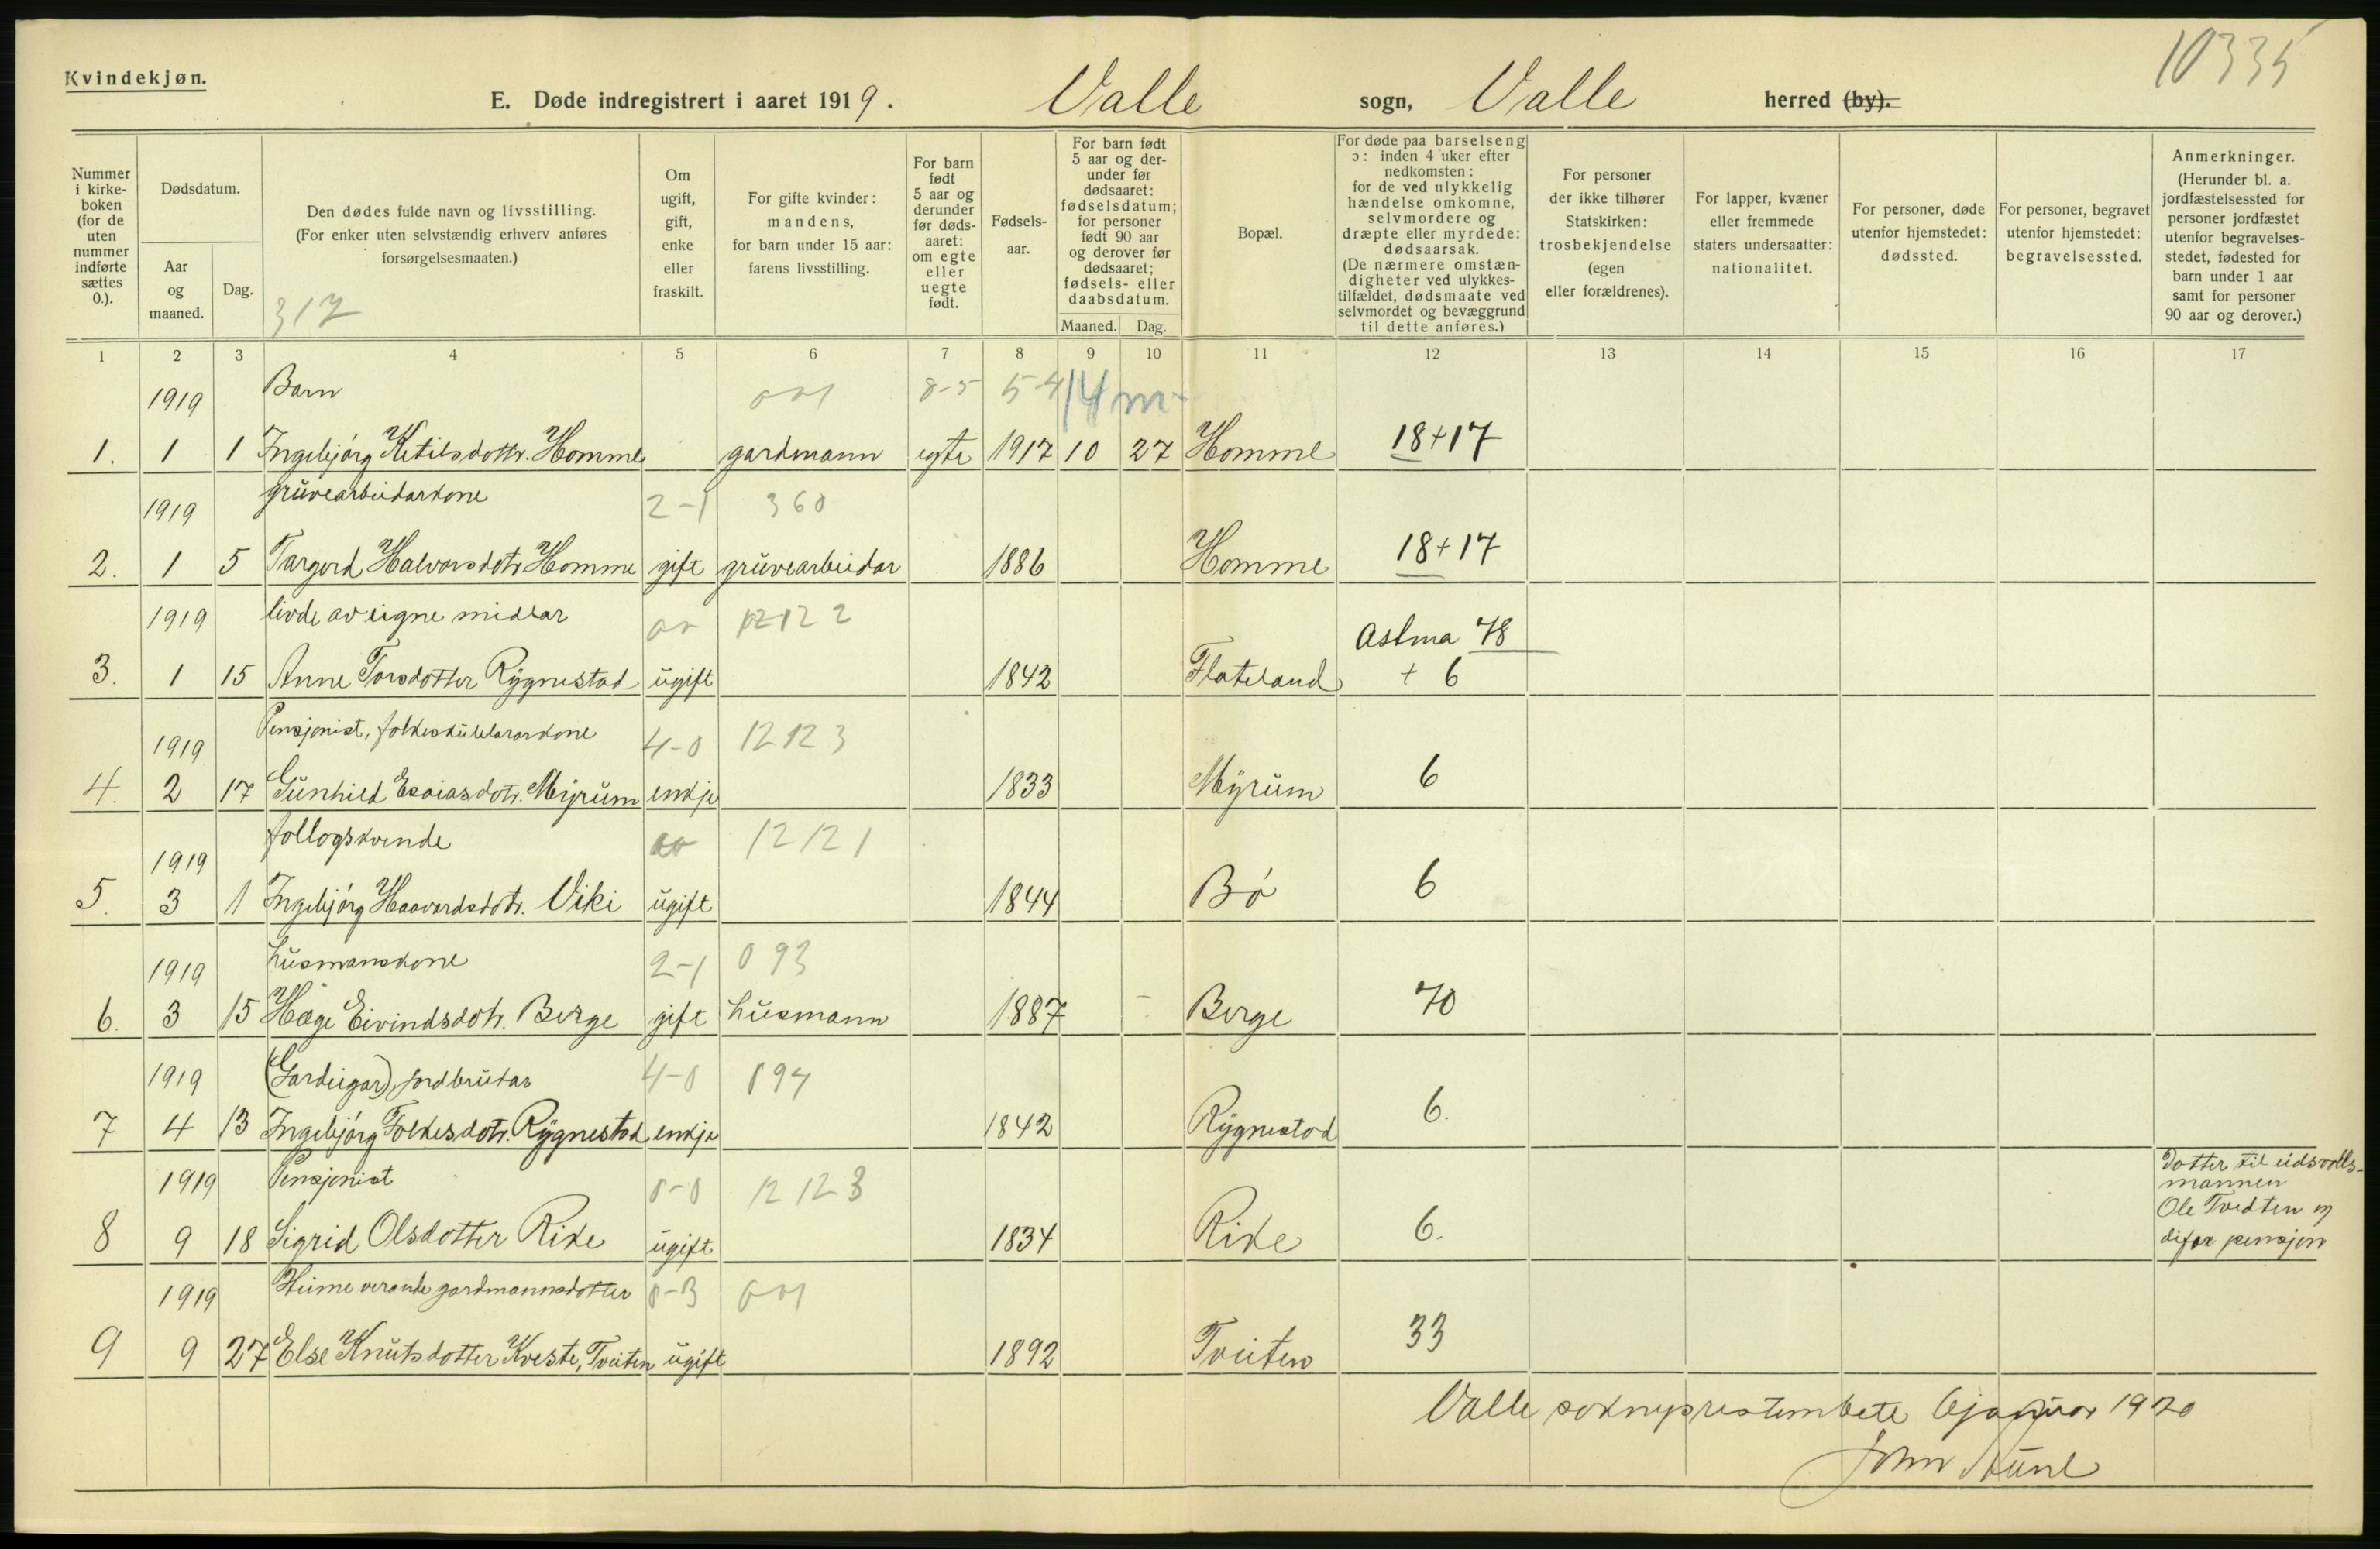 10335
Kvindekjøn.
E. Døde indregistrert i aaret 1919. Valle sogn, Valle herred (by).
Nummer i kirke-boken (for de uten nummer indførte sættes 0.).
Dødsdatum.
Aar og maaned.
Dag.
Den dødes fulde navn og livsstilling.
(For enker uten selvstændig erhverv anføres
forsørgelsesmaaten.)
317
Om ugift, gift, enke eller fraskilt.
For gifte kvinder:
mandens,
for barn under 15 aar:
farens livsstilling.
For barn født 5 aar og derunder før døds-aaret: om egte eller uegte født.
Fødsels-aar.
For barn født 5 aar og der-under før dødsaaret: fødselsdatum; for personer født 90 aar og derover før dødsaaret; fødsels- eller daabsdatum.
Maaned. Dag.
Bopæl.
For døde paa barselseng
ɔ: inden 4 uker efter
nedkomsten:
for de ved ulykkelig
hændelse omkomne,
selvmordere og
dræpte eller myrdede:
dødsaarsak.
(De nærmere omstæn-
digheter ved ulykkes-
tilfældet, dødsmaate ved
selvmordet og bevæggrund
til dette anføres.)
For personer
der ikke tilhører
Statskirken:
trosbekjendelse
(egen
eller forældrenes).
For lapper, kvæner
eller fremmede
staters undersaatter:
nationalitet.
For personer, døde
utenfor hjemstedet:
dødssted.
For personer, begravet
utenfor hjemstedet:
begravelsessted.
Anmerkninger.
(Herunder bl. a.
jordfæstelsessted for
personer jordfæstet
utenfor begravelses-
stedet, fødested for
barn under 1 aar
samt for personer
90 aar og derover.)
1 2 3 4 5 6 7 8 9 10 11 12 13 14 15 16 17
1919 Barn 001 8-5 5-4 14 m
1. 1 1 Ingebjórg Ketilsdottr. Homme gardmann egte 1917 10 27 Homme 18+17
1919 grüvearbeidarkone 2-1 360
2. 1 5 Targerd Halvorsdotr Homme gift grüvearbeidar 1886 Homme 18+17
1919 livde av eigne midlar 12122
3. 1 15 Anne Torsdotter Rygnestad ugift 1842 Flateland Astma 78
+ 6
1919 Pensjonist, folkeskulelararkone 4-0 12123
4. 2 17 Gunhild Esaiasdotr. Myrum enkje 1833 Myrum 6
1919 follogskvende 12121
5. 3 1 Ingebjórg Haavardsdotr. Viki ugift 1844 Bó 6
1919 husmanskone 2-1 093
6. 3 15 Hæge Eivindsdotr. Berge gift husmann 1887 Berge 70
1919 (Gardeigar), jordbrukar 4-0 094
7 4 13 Ingebjórg Folkesdotr. Rygnestad enkje 1842 Rygnestad 6.
1919 Pensjonist 0-0 12123
8 9 18 Sigrid Olsdotter Rike ugift 1834 Rike 6.
Dotter til eidsvolls-
mannen
Ole Tvedten og
difor pensjon
1919 Heime verande gardmannsdotter 0-3 001
9 9 27 Else Knutsdotter Kveste, Tveiten ugift 1892 Tveiten 33
Valle soknuprestembete 6 januar 1920
John Aune